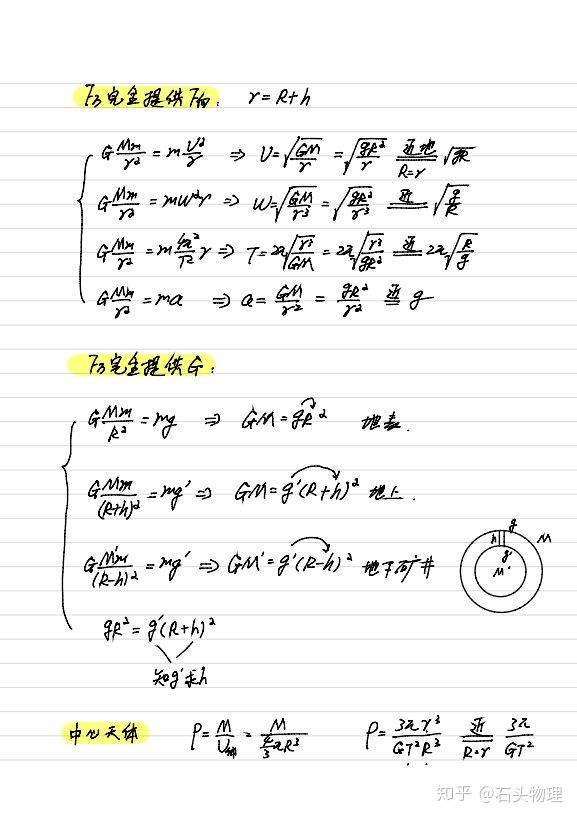 F万完全提供F向： r=R+h
G Mm/r² = m v²/r ⇒ v=√(GM/r) = √(gR²/r) 近地 R=r √gR
G Mm/r² = mω²r ⇒ ω=√(GM/r³) = √(gR²/r³) 近 √(g/R)
G Mm/r² = m 4π²/T² r ⇒ T=2π√(r³/GM) = 2π√(r³/gR²) 近 2π√(R/g)
G Mm/r² = ma ⇒ a = GM/r² = gR²/r² 近 g
F万完全提供G：
G Mm/R² = mg ⇒ GM = gR² 地表.
G Mm/(R+h)² = mg′ ⇒ GM = g′(R+h)² 地上.
G M′m/(R-h)² = mg′ ⇒ GM′ = g′(R-h)² 地下矿井
g M
h
g′
M′
gR² = g′(R+h)²
知g′求h
中心天体 ρ = M/V体 = M/(4/3 πR³) ρ = 3πr³/GT²R³ 近 R=r 3π/GT²
知乎 @石头物理